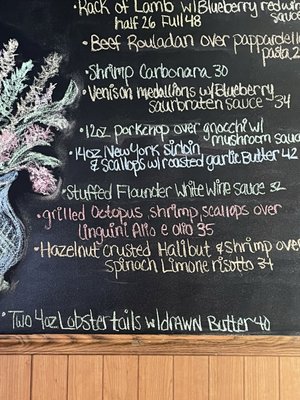 Rack of Lamb w/ Blueberry red wine
sauce
half 26 Full 48
Beef Rouladan over pappardelle
pasta 2
Shrimp Carbonara 30
Venison medallions w/ Blueberry
saurbraten sauce - 34
12oz porkchop over gnocchi w/
mushroom sauce
14oz New York sirloin
& scallops w/ roasted garlic Butter 42
Stuffed Flounder White wine sauce 32
grilled Octopus, shrimp, scallops over
linguini Alio e olio 35
Hazelnut crusted Halibut & shrimp over
spinach Limone risotto 34
Two 4oz Lobster tails w/ drawn Butter 40